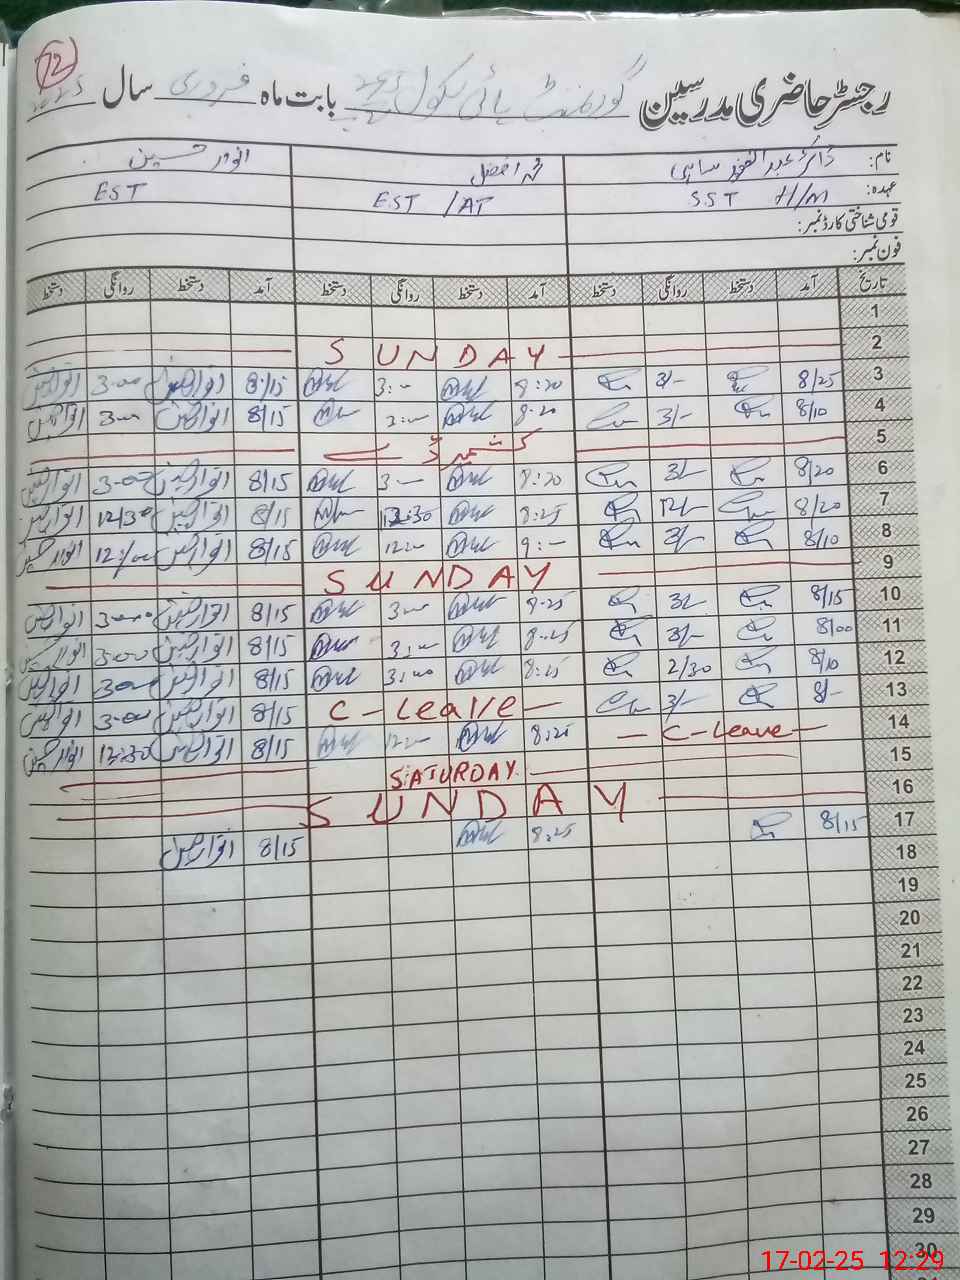 12
رجسٹر حاضری مدرسین گورنمنٹ ہائی سکول بابت ماہ فروری سال 2025
نام: ڈاکٹر عبد ساہی محمد افضل انوار حسین
عہدہ: SST H/M EST / AT EST
قومی شناختی کارڈ نمبر:
فون نمبر:
تاریخ آمد دستخط روانگی دستخط آمد دستخط روانگی دستخط آمد دستخط روانگی دستخط
1
2 SUNDAY
3 8/25 3/- 8:20 3:- 8/15 انوار حسین 3-00 انوار حسین
4 8/10 3/- 8:20 3:- 8/15 انوار حسین 3-00 انوار حسین
5 کشمیر ڈے
6 8/20 3/- 8:20 3:- 8/15 انوار حسین 3-00 انوار حسین
7 8/20 12/- 8:25 12:30 8/15 انوار حسین 12/30 انوار حسین
8 8/10 3/- 9:- 12:- 8/15 انوار حسین 12/00 انوار حسین
9 SUNDAY
10 8/15 3/- 8:25 3:00 8/15 انوار حسین 3-00 انوار حسین
11 8/00 3/- 8:25 3:00 8/15 انوار حسین 3-00 انوار حسین
12 8/10 2/30 8:25 3:00 8/15 انوار حسین 3-00 انوار حسین
13 8/- 3/- C-Leave 8/15 انوار حسین 3-00 انوار حسین
14 C-Leave 8:25 12:- 8/15 انوار حسین 12:30 انوار حسین
15 SATURDAY
16 SUNDAY
17 8/15 8:25 8/15 انوار حسین
18
19
20
21
22
23
24
25
26
27
28
29
30
17-02-25 12:29